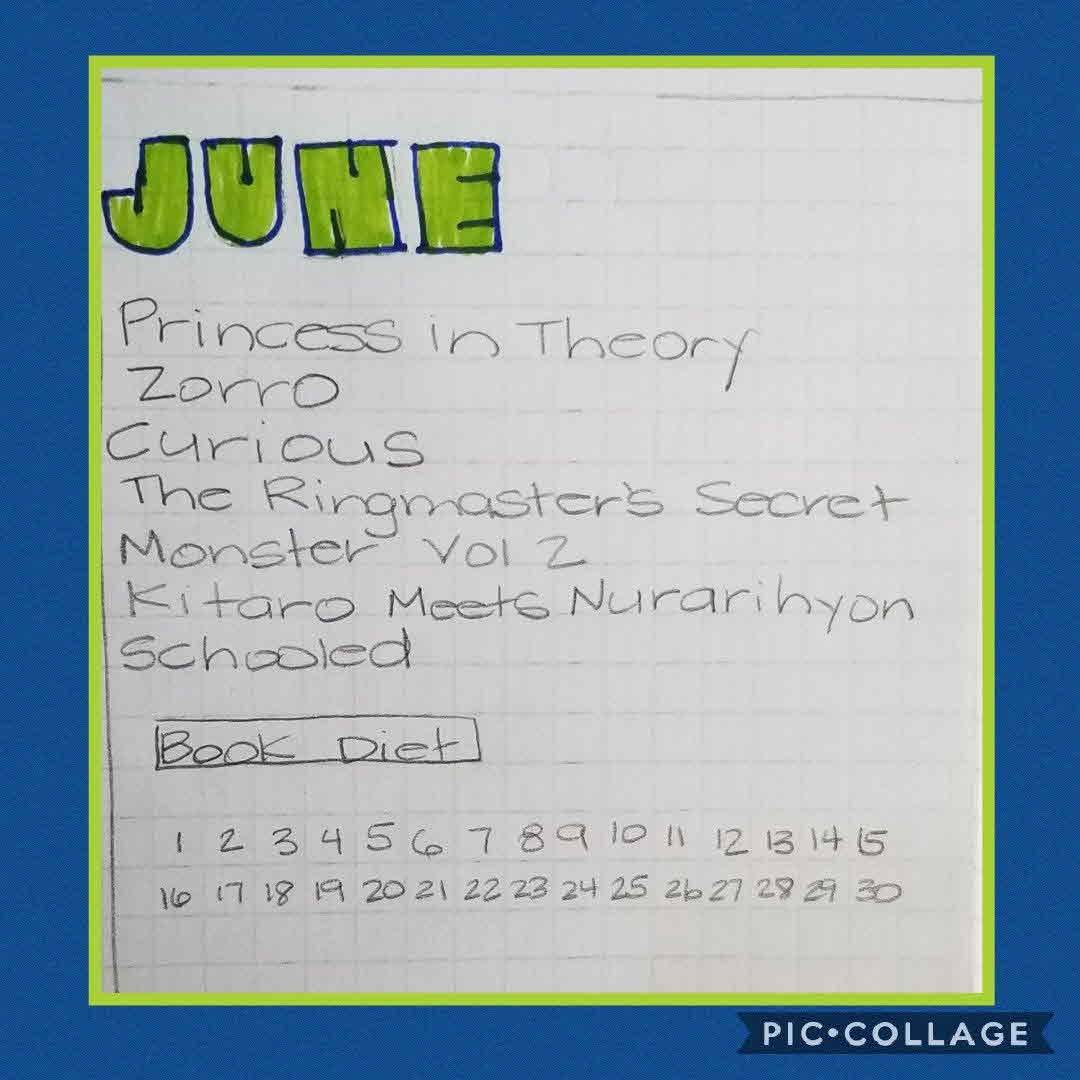 JUNE
Princess in Theory
Zorro
Curious
The Ringmaster's Secret
Monster Vol 2
Kitaro Meets Nurarihyon
Schooled
Book Diet
1 2 3 4 5 6 7 8 9 10 11 12 13 14 15
16 17 18 19 20 21 22 23 24 25 26 27 28 29 30
PIC•COLLAGE